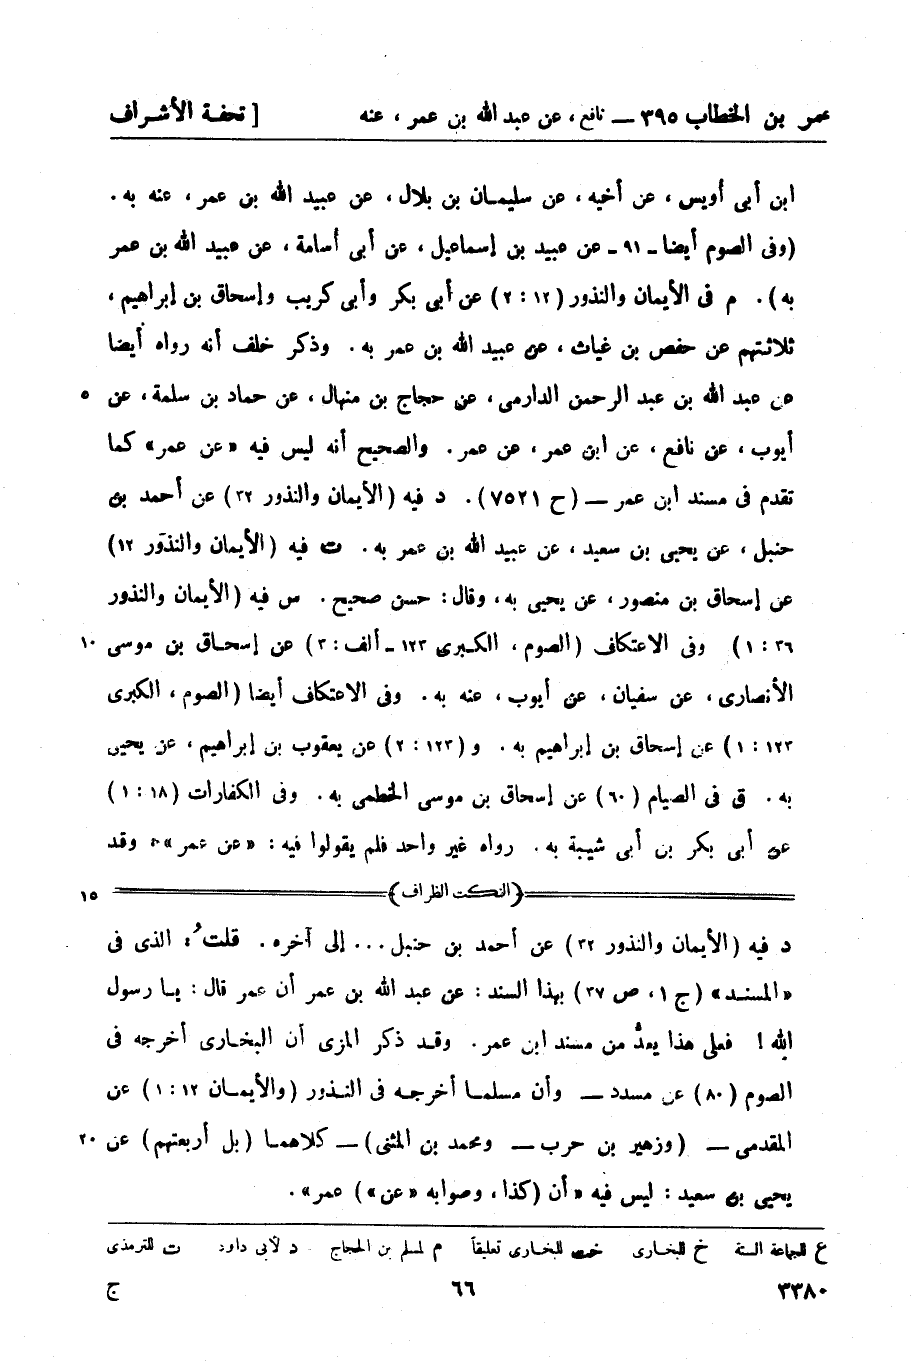 عمر بن الخطاب ٣٩٥ — نافع ، عن عبد الله بن عمر ، عنه [ تحفة الأشراف
ابن أبى أويس ، عن أخيه ، عن سليمان بن بلال ، عن عبيد الله بن عمر ، عنه به .
(وفى الصوم أيضا ـ ٩١ ـ عن عبيد بن إسماعيل ، عن أبى أسامة ، عن عبيد الله بن عمر
به) . م فى الأيمان والنذور (١٢ : ٢) عن أبى بكر وأبى كريب وإسحاق بن إبراهيم ،
ثلاثتهم عن حفص بن غياث ، عن عبيد الله بن عمر به . وذكر خلف أنه رواه أيضا
عن عبد الله بن عبد الرحمن الدارمى ، عن حجاج بن منهال ، عن حماد بن سلمة ، عن ٥
أيوب ، عن نافع ، عن ابن عمر ، عن عمر . والصحيح أنه ليس فيه «عن عمر» كما
تقدم فى مسند ابن عمر — (ح ٧٥٢١) . د فيه (الأيمان والنذور ٣٢) عن أحمد بن
حنبل ، عن يحيى بن سعيد ، عن عبيد الله بن عمر به . ت فيه (الأيمان والنذور ١٢)
عن إسحاق بن منصور ، عن يحيى به ، وقال : حسن صحيح . س فيه (الأيمان والنذور
٣٦ : ١) وفى الاعتكاف (الصوم ، الكبرى ١٢٣ ـ ألف : ٣) عن إسحاق بن موسى ١٠
الأنصارى ، عن سفيان ، عن أيوب ، عنه به . وفى الاعتكاف أيضا (الصوم ، الكبرى
١٢٣ : ١) عن إسحاق بن إبراهيم به . و (١٢٣ : ٢) عن يعقوب بن إبراهيم ، عن يحيى
به . ق فى الصيام (٦٠) عن إسحاق بن موسى الخطمى به . وفى الكفارات (١٨ : ١)
عن أبى بكر بن أبى شيبة به . رواه غير واحد فلم يقولوا فيه : «عن عمر» وقد
(النكت الظراف) ١٥
د فيه (الأيمان والنذور ٣٢) عن أحمد بن حنبل ... إلى آخره . قلتُ : الذى فى
«المسند» (ج ١ ، ص ٣٧) بهذا السند : عن عبد الله بن عمر أن عمر قال : يا رسول
الله ! فعلى هذا يعدُّ من مسند ابن عمر . وقد ذكر المزى أن البخارى أخرجه فى
الصوم (٨٠) عن مسدد — وأن مسلما أخرجه فى النذور (والأيمان ١٢ : ١) عن
المقدمى — (وزهير بن حرب — ومحمد بن المثنى) — كلاهما (بل أربعتهم) عن ٢٠
يحيى بن سعيد : ليس فيه «أن (كذا ، وصوابه «عن») عمر» .
ع للجماعة الستة خ للبخارى خت للبخارى تعليقاً م لمسلم بن الحجاج د لأبى داود ت للترمذى
٣٣٨٠ ٦٦ ج